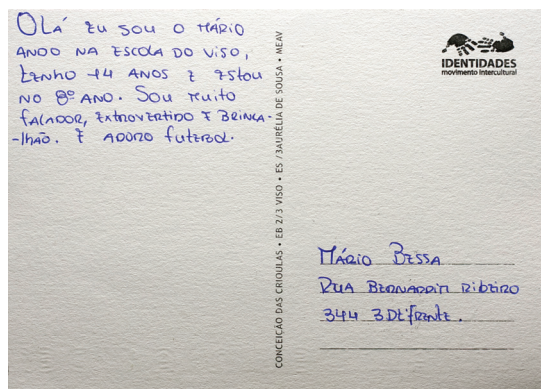 Olá eu sou o Mário
ando na escola do Viso,
tenho 14 anos e estou
no 8º ano. Sou muito
falador, extrovertido e brinca-
-lhão. E adoro futebol.
CONCEIÇÃO DAS CRIOULAS • EB 2/3 VISO • ES /3AURÉLIA DE SOUSA • MEAV
IDENTIDADES
movimento intercultural
Mário Bessa
Rua Bernardim Ribeiro
344 3Dtifrente.